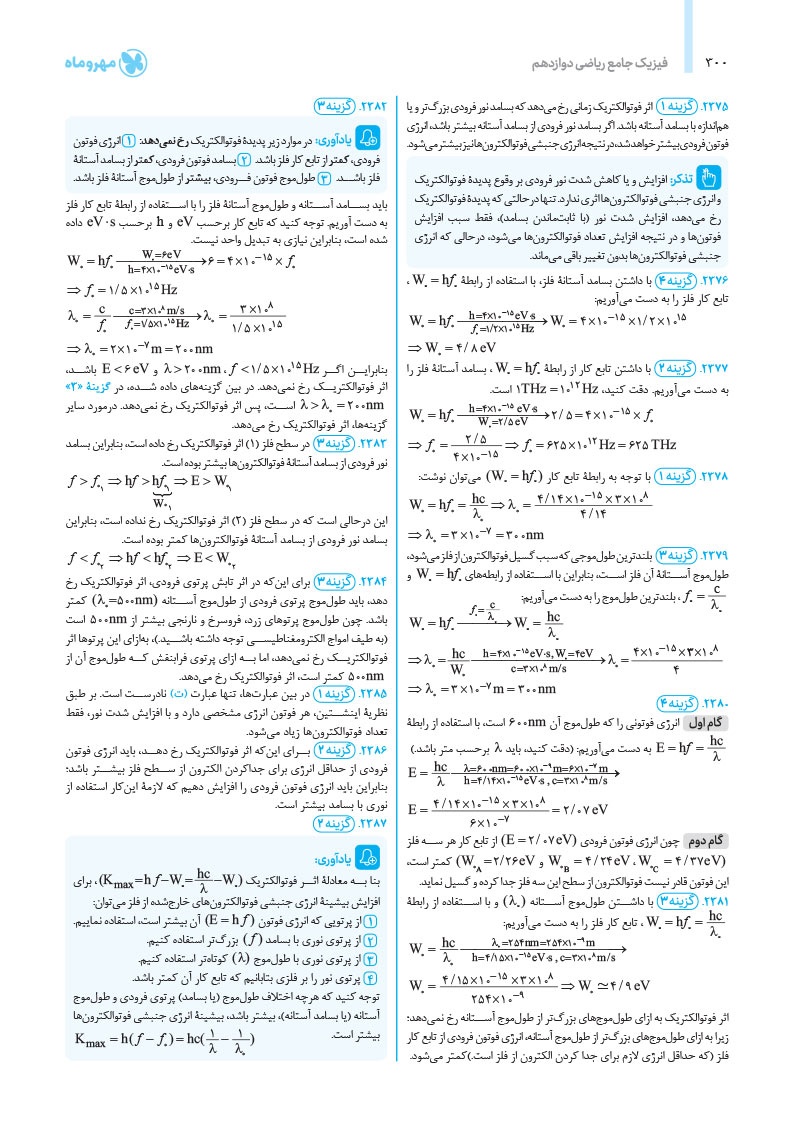 ۳۰۰
فیزیک جامع ریاضی دوازدهم
مهروماه
۲۳۷۵. گزینه ۱ اثر فوتوالکتریک زمانی رخ می‌دهد که بسامد نور فرودی بزرگ‌تر و یا
هم‌اندازه با بسامد آستانه باشد. اگر بسامد نور فرودی از بسامد آستانه بیشتر باشد، انرژی
فوتون فرودی بیشتر خواهد شد، در نتیجه انرژی جنبشی فوتوالکترون‌ها نیز بیشتر می‌شود.
تذکر: افزایش و یا کاهش شدت نور فرودی بر وقوع پدیدهٔ فوتوالکتریک
و انرژی جنبشی فوتوالکترون‌ها اثری ندارد. تنها در حالتی که پدیدهٔ فوتوالکتریک
رخ می‌دهد، افزایش شدت نور (با ثابت‌ماندن بسامد)، فقط سبب افزایش
فوتون‌ها و در نتیجه افزایش تعداد فوتوالکترون‌ها می‌شود، درحالی که انرژی
جنبشی فوتوالکترون‌ها بدون تغییر باقی می‌ماند.
۲۳۷۶. گزینه ۴ با داشتن بسامد آستانهٔ فلز، با استفاده از رابطهٔ W₀ = hf₀ ،
تابع کار فلز را به دست می‌آوریم:
W₀ = hf₀ —(h=۴×۱۰⁻¹⁵ eV·s / f₀=۱/۲×۱۰¹⁵ Hz)→ W₀ = ۴×۱۰⁻¹⁵ ×۱/۲×۱۰¹⁵
⇒ W₀ = ۴/۸ eV
۲۳۷۷. گزینه ۲ با داشتن تابع کار از رابطهٔ W₀ = hf₀ ، بسامد آستانهٔ فلز را
به دست می‌آوریم. دقت کنید، ۱THz = ۱۰¹² Hz است.
W₀ = hf₀ —(h=۴×۱۰⁻¹⁵ eV·s / W₀=۲/۵ eV)→ ۲/۵ = ۴×۱۰⁻¹⁵ × f₀
⇒ f₀ = ۲/۵ / ۴×۱۰⁻¹⁵ ⇒ f₀ = ۶۲۵×۱۰¹² Hz = ۶۲۵ THz
۲۳۷۸. گزینه ۱ با توجه به رابطهٔ تابع کار (W₀ = hf₀) می‌توان نوشت:
W₀ = hf₀ = hc/λ₀ ⇒ λ₀ = ۴/۱۴×۱۰⁻¹⁵ ×۳×۱۰⁸ / ۴/۱۴
⇒ λ₀ = ۳×۱۰⁻⁷ = ۳۰۰nm
۲۳۷۹. گزینه ۳ بلندترین طول‌موجی که سبب گسیل فوتوالکترون از فلز می‌شود،
طول‌موج آستانهٔ آن فلز است، بنابراین با استفاده از رابطه‌های W₀ = hf₀ و
f₀ = c/λ₀ ، بلندترین طول‌موج را به دست می‌آوریم:
W₀ = hf₀ —(f₀=c/λ₀)→ W₀ = hc/λ₀
⇒ λ₀ = hc/W₀ —(h=۴×۱۰⁻¹⁵ eV·s, W₀=۴eV / c=۳×۱۰⁸ m/s)→ λ₀ = ۴×۱۰⁻¹⁵×۳×۱۰⁸ / ۴
⇒ λ₀ = ۳×۱۰⁻⁷ m = ۳۰۰nm
۲۳۸۰. گزینه ۴
گام اول انرژی فوتونی را که طول‌موج آن ۶۰۰nm است، با استفاده از رابطهٔ
E = hf = hc/λ به دست می‌آوریم: (دقت کنید، باید λ برحسب متر باشد.)
E = hc/λ —(λ=۶۰۰nm=۶۰۰×۱۰⁻⁹m=۶×۱۰⁻⁷ m / h=۴/۱۴×۱۰⁻¹⁵eV·s , c=۳×۱۰⁸m/s)→
E = ۴/۱۴×۱۰⁻¹⁵ ×۳×۱۰⁸ / ۶×۱۰⁻⁷ = ۲/۰۷ eV
گام دوم چون انرژی فوتون فرودی (E = ۲/۰۷eV) از تابع کار هر سه فلز
(W₀C = ۴/۳۷eV ، W₀B = ۴/۲۴eV و W₀A = ۲/۲۶eV) کمتر است،
این فوتون قادر نیست فوتوالکترون از سطح این سه فلز جدا کرده و گسیل نماید.
۲۳۸۱. گزینه ۳ با داشتن طول‌موج آستانه (λ₀) و با استفاده از رابطهٔ
W₀ = hf₀ = hc/λ₀ ، تابع کار فلز را به دست می‌آوریم:
W₀ = hc/λ₀ —(λ₀=۲۵۴nm=۲۵۴×۱۰⁻⁹m / h=۴/۱۵×۱۰⁻¹⁵eV·s , c=۳×۱۰⁸m/s)→
W₀ = ۴/۱۵×۱۰⁻¹⁵ ×۳×۱۰⁸ / ۲۵۴×۱۰⁻⁹ ⇒ W₀ ≃ ۴/۹ eV
اثر فوتوالکتریک به ازای طول‌موج‌های بزرگ‌تر از طول‌موج آستانه رخ نمی‌دهد؛
زیرا به ازای طول‌موج‌های بزرگ‌تر از طول‌موج آستانه، انرژی فوتون فرودی از تابع کار
فلز (که حداقل انرژی لازم برای جدا کردن الکترون از فلز است.) کمتر می‌شود.
۲۳۸۲. گزینه ۳
یادآوری: در موارد زیر پدیدهٔ فوتوالکتریک رخ نمی‌دهد: ۱ انرژی فوتون
فرودی، کمتر از تابع کار فلز باشد. ۲ بسامد فوتون فرودی، کمتر از بسامد آستانهٔ
فلز باشد. ۳ طول‌موج فوتون فرودی، بیشتر از طول‌موج آستانهٔ فلز باشد.
باید بسامد آستانه و طول‌موج آستانهٔ فلز را با استفاده از رابطهٔ تابع کار فلز
به دست آوریم. توجه کنید که تابع کار برحسب eV و h برحسب eV·s داده
شده است، بنابراین نیازی به تبدیل واحد نیست.
W₀ = hf₀ —(W₀=۶eV / h=۴×۱۰⁻¹⁵eV·s)→ ۶ = ۴×۱۰⁻¹⁵ × f₀
⇒ f₀ = ۱/۵×۱۰¹⁵ Hz
λ₀ = c/f₀ —(c=۳×۱۰⁸ m/s / f₀=۱/۵×۱۰¹⁵Hz)→ λ₀ = ۳×۱۰⁸ / ۱/۵×۱۰¹⁵
⇒ λ₀ = ۲×۱۰⁻⁷ m = ۲۰۰nm
بنابراین اگر f < ۱/۵×۱۰¹⁵ Hz ، λ > ۲۰۰nm و E < ۶eV باشد،
اثر فوتوالکتریک رخ نمی‌دهد. در بین گزینه‌های داده شده، در گزینهٔ «۳»
λ > λ₀ = ۲۰۰nm است، پس اثر فوتوالکتریک رخ نمی‌دهد. درمورد سایر
گزینه‌ها، اثر فوتوالکتریک رخ می‌دهد.
۲۳۸۳. گزینه ۳ در سطح فلز (۱) اثر فوتوالکتریک رخ داده است، بنابراین بسامد
نور فرودی از بسامد آستانهٔ فوتوالکترون‌ها بیشتر بوده است.
f > f₀₁ ⇒ hf > hf₀₁ ⇒ E > W₀₁
W₀₁
این درحالی است که در سطح فلز (۲) اثر فوتوالکتریک رخ نداده است، بنابراین
بسامد نور فرودی از بسامد آستانهٔ فوتوالکترون‌ها کمتر بوده است.
f < f₀₂ ⇒ hf < hf₀₂ ⇒ E < W₀₂
۲۳۸۴. گزینه ۳ برای این‌که در اثر تابش پرتوی فرودی، اثر فوتوالکتریک رخ
دهد، باید طول‌موج پرتوی فرودی از طول‌موج آستانه (λ₀=۵۰۰nm) کمتر
باشد. چون طول‌موج پرتوهای زرد، فروسرخ و نارنجی بیشتر از ۵۰۰nm است
(به طیف امواج الکترومغناطیسی توجه داشته باشید.)، به‌ازای این پرتوها اثر
فوتوالکتریک رخ نمی‌دهد، اما به ازای پرتوی فرابنفش که طول‌موج آن از
۵۰۰nm کمتر است، اثر فوتوالکتریک رخ می‌دهد.
۲۳۸۵. گزینه ۱ در بین عبارت‌ها، تنها عبارت (ت) نادرست است. بر طبق
نظریهٔ اینشتین، هر فوتون انرژی مشخصی دارد و با افزایش شدت نور، فقط
تعداد فوتون‌ها زیاد می‌شود.
۲۳۸۶. گزینه ۲ برای این‌که اثر فوتوالکتریک رخ دهد، باید انرژی فوتون
فرودی از حداقل انرژی برای جداکردن الکترون از سطح فلز بیشتر باشد؛
بنابراین باید انرژی فوتون فرودی را افزایش دهیم که لازمهٔ این‌کار استفاده از
نوری با بسامد بیشتر است.
۲۳۸۷. گزینه ۲
یادآوری:
بنا به معادلهٔ اثر فوتوالکتریک (Kmax=hf−W₀=hc/λ−W₀)، برای
افزایش بیشینهٔ انرژی جنبشی فوتوالکترون‌های خارج‌شده از فلز می‌توان:
۱ از پرتویی که انرژی فوتون (E = hf) آن بیشتر است، استفاده نماییم.
۲ از پرتوی نوری با بسامد (f) بزرگ‌تر استفاده کنیم.
۳ از پرتوی نوری با طول‌موج (λ) کوتاه‌تر استفاده کنیم.
۴ پرتوی نور را بر فلزی بتابانیم که تابع کار آن کمتر باشد.
توجه کنید که هرچه اختلاف طول‌موج (یا بسامد) پرتوی فرودی و طول‌موج
آستانه (یا بسامد آستانه)، بیشتر باشد، بیشینهٔ انرژی جنبشی فوتوالکترون‌ها
بیشتر است. Kmax = h(f − f₀) = hc(۱/λ − ۱/λ₀)